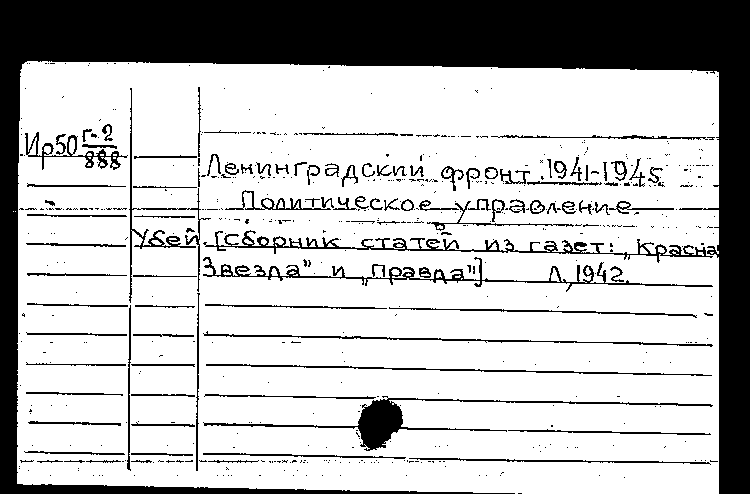 Ир50 Г-2/888
Ленинградский фронт. 1941-1945
Политическое управление.
Убей. [Сборник статей из газет: „Красна
Звезда" и „Правда"]. Л., 1942.